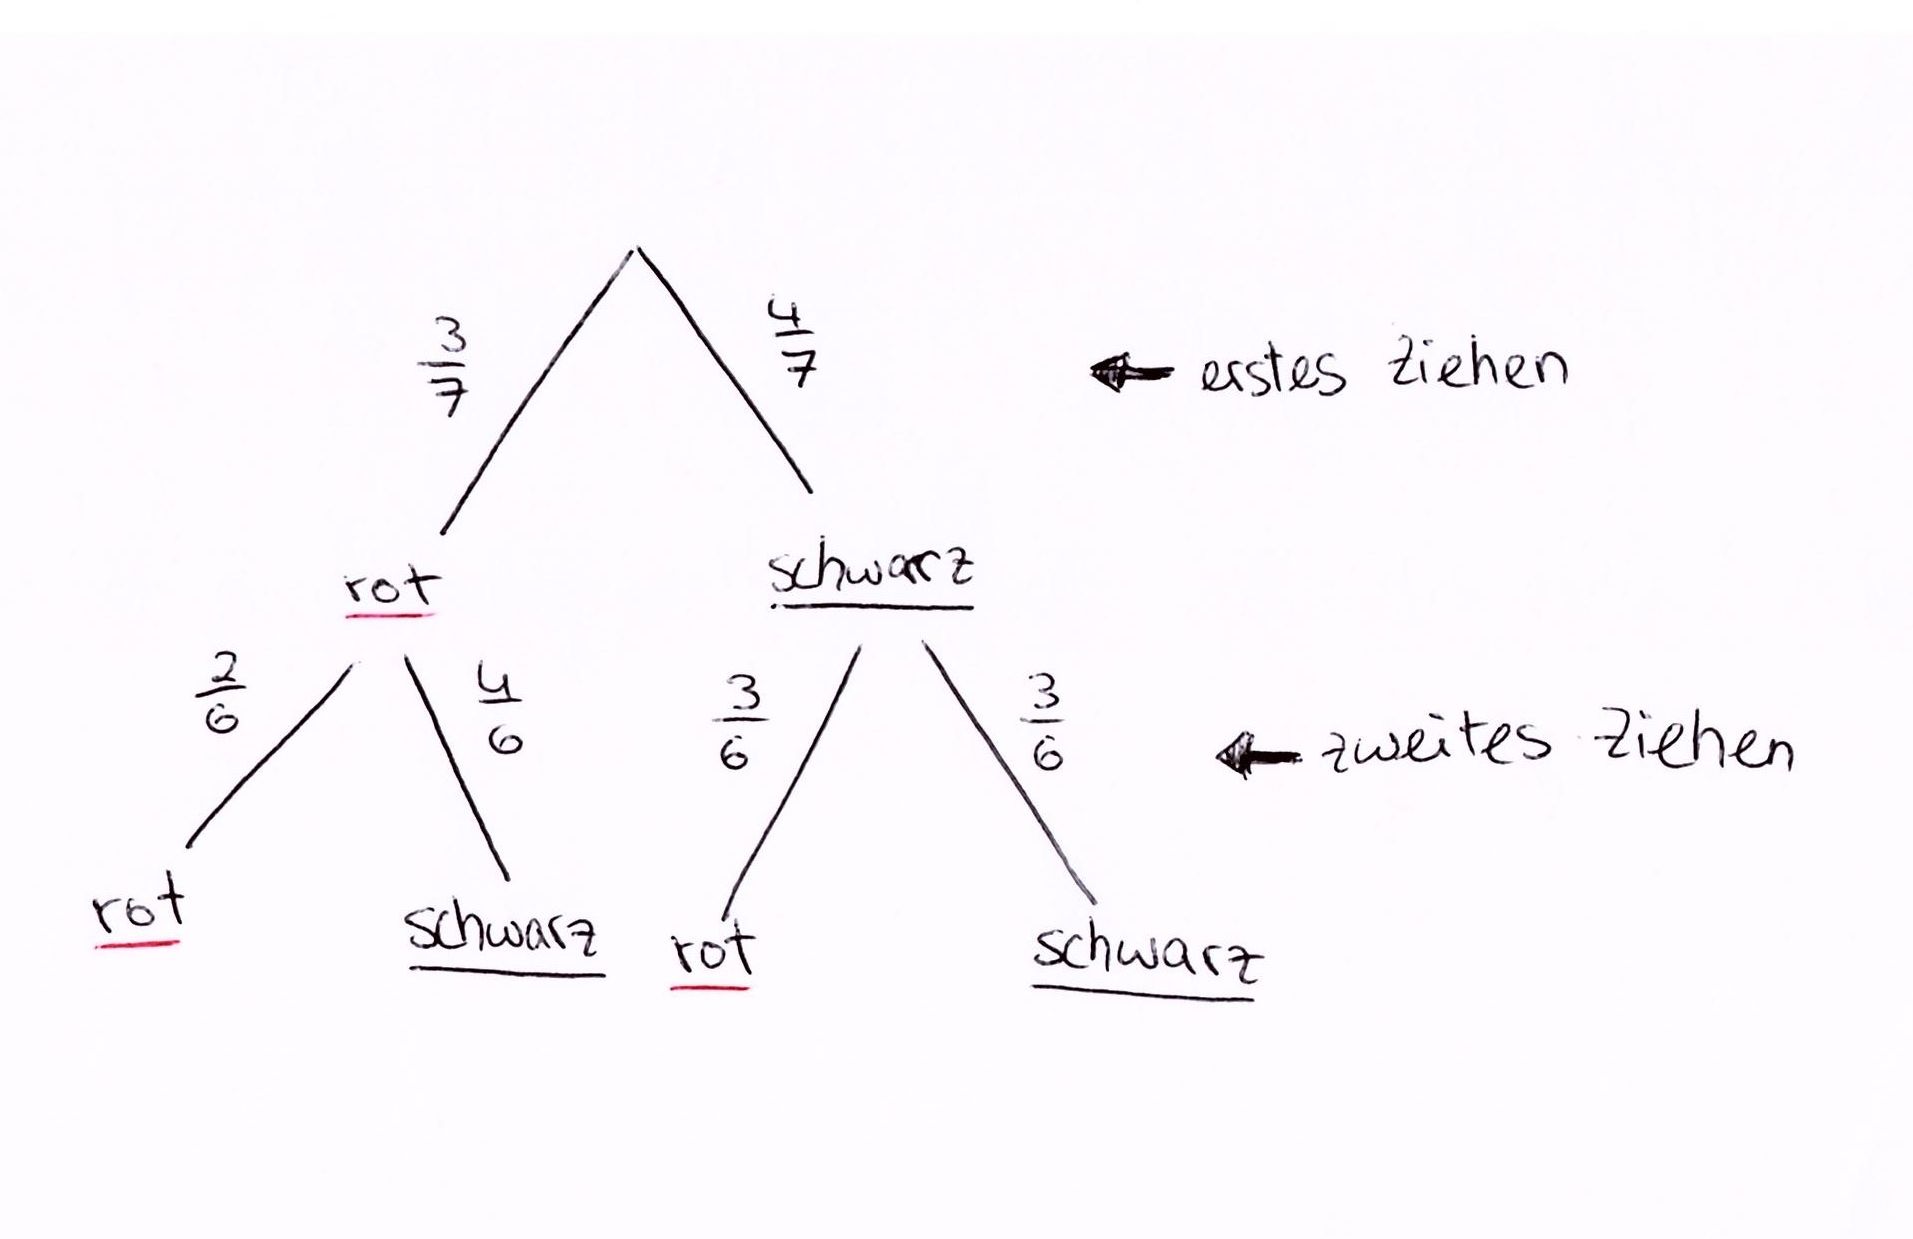 3/7
4/7
erstes Ziehen
rot
schwarz
2/6
4/6
3/6
3/6
zweites Ziehen
rot
schwarz
rot
schwarz